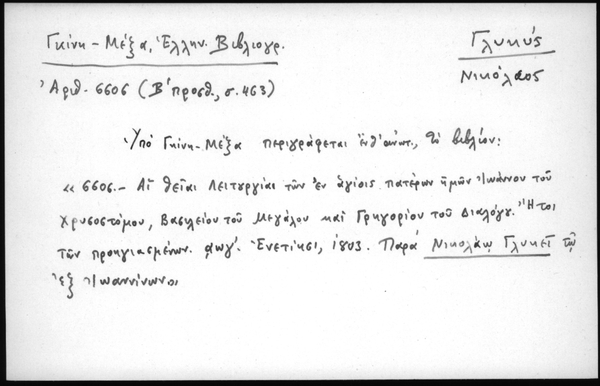 Γκίνη - Μέξα, Ἑλλην. Βιβλιογρ.
Γλυκύς
Νικόλαος
Ἀριθ. 6606 (Β΄ προσθ., σ. 463)
Ὑπό Γκίνη-Μέξα περιγράφεται τό βιβλίον:
« 6606.- Αἱ θεῖαι Λειτουργίαι τῶν ἐν ἁγίοις πατέρων ἡμῶν Ἰωάννου τοῦ
Χρυσοστόμου, Βασιλείου τοῦ Μεγάλου καί Γρηγορίου τοῦ Διαλόγου. Ἤτοι
τῶν προηγιασμένων. ͵αωγ΄. Ἐνετίησι, 1803. Παρά Νικολάῳ Γλυκεῖ τῷ
ἐξ Ἰωαννίνων»